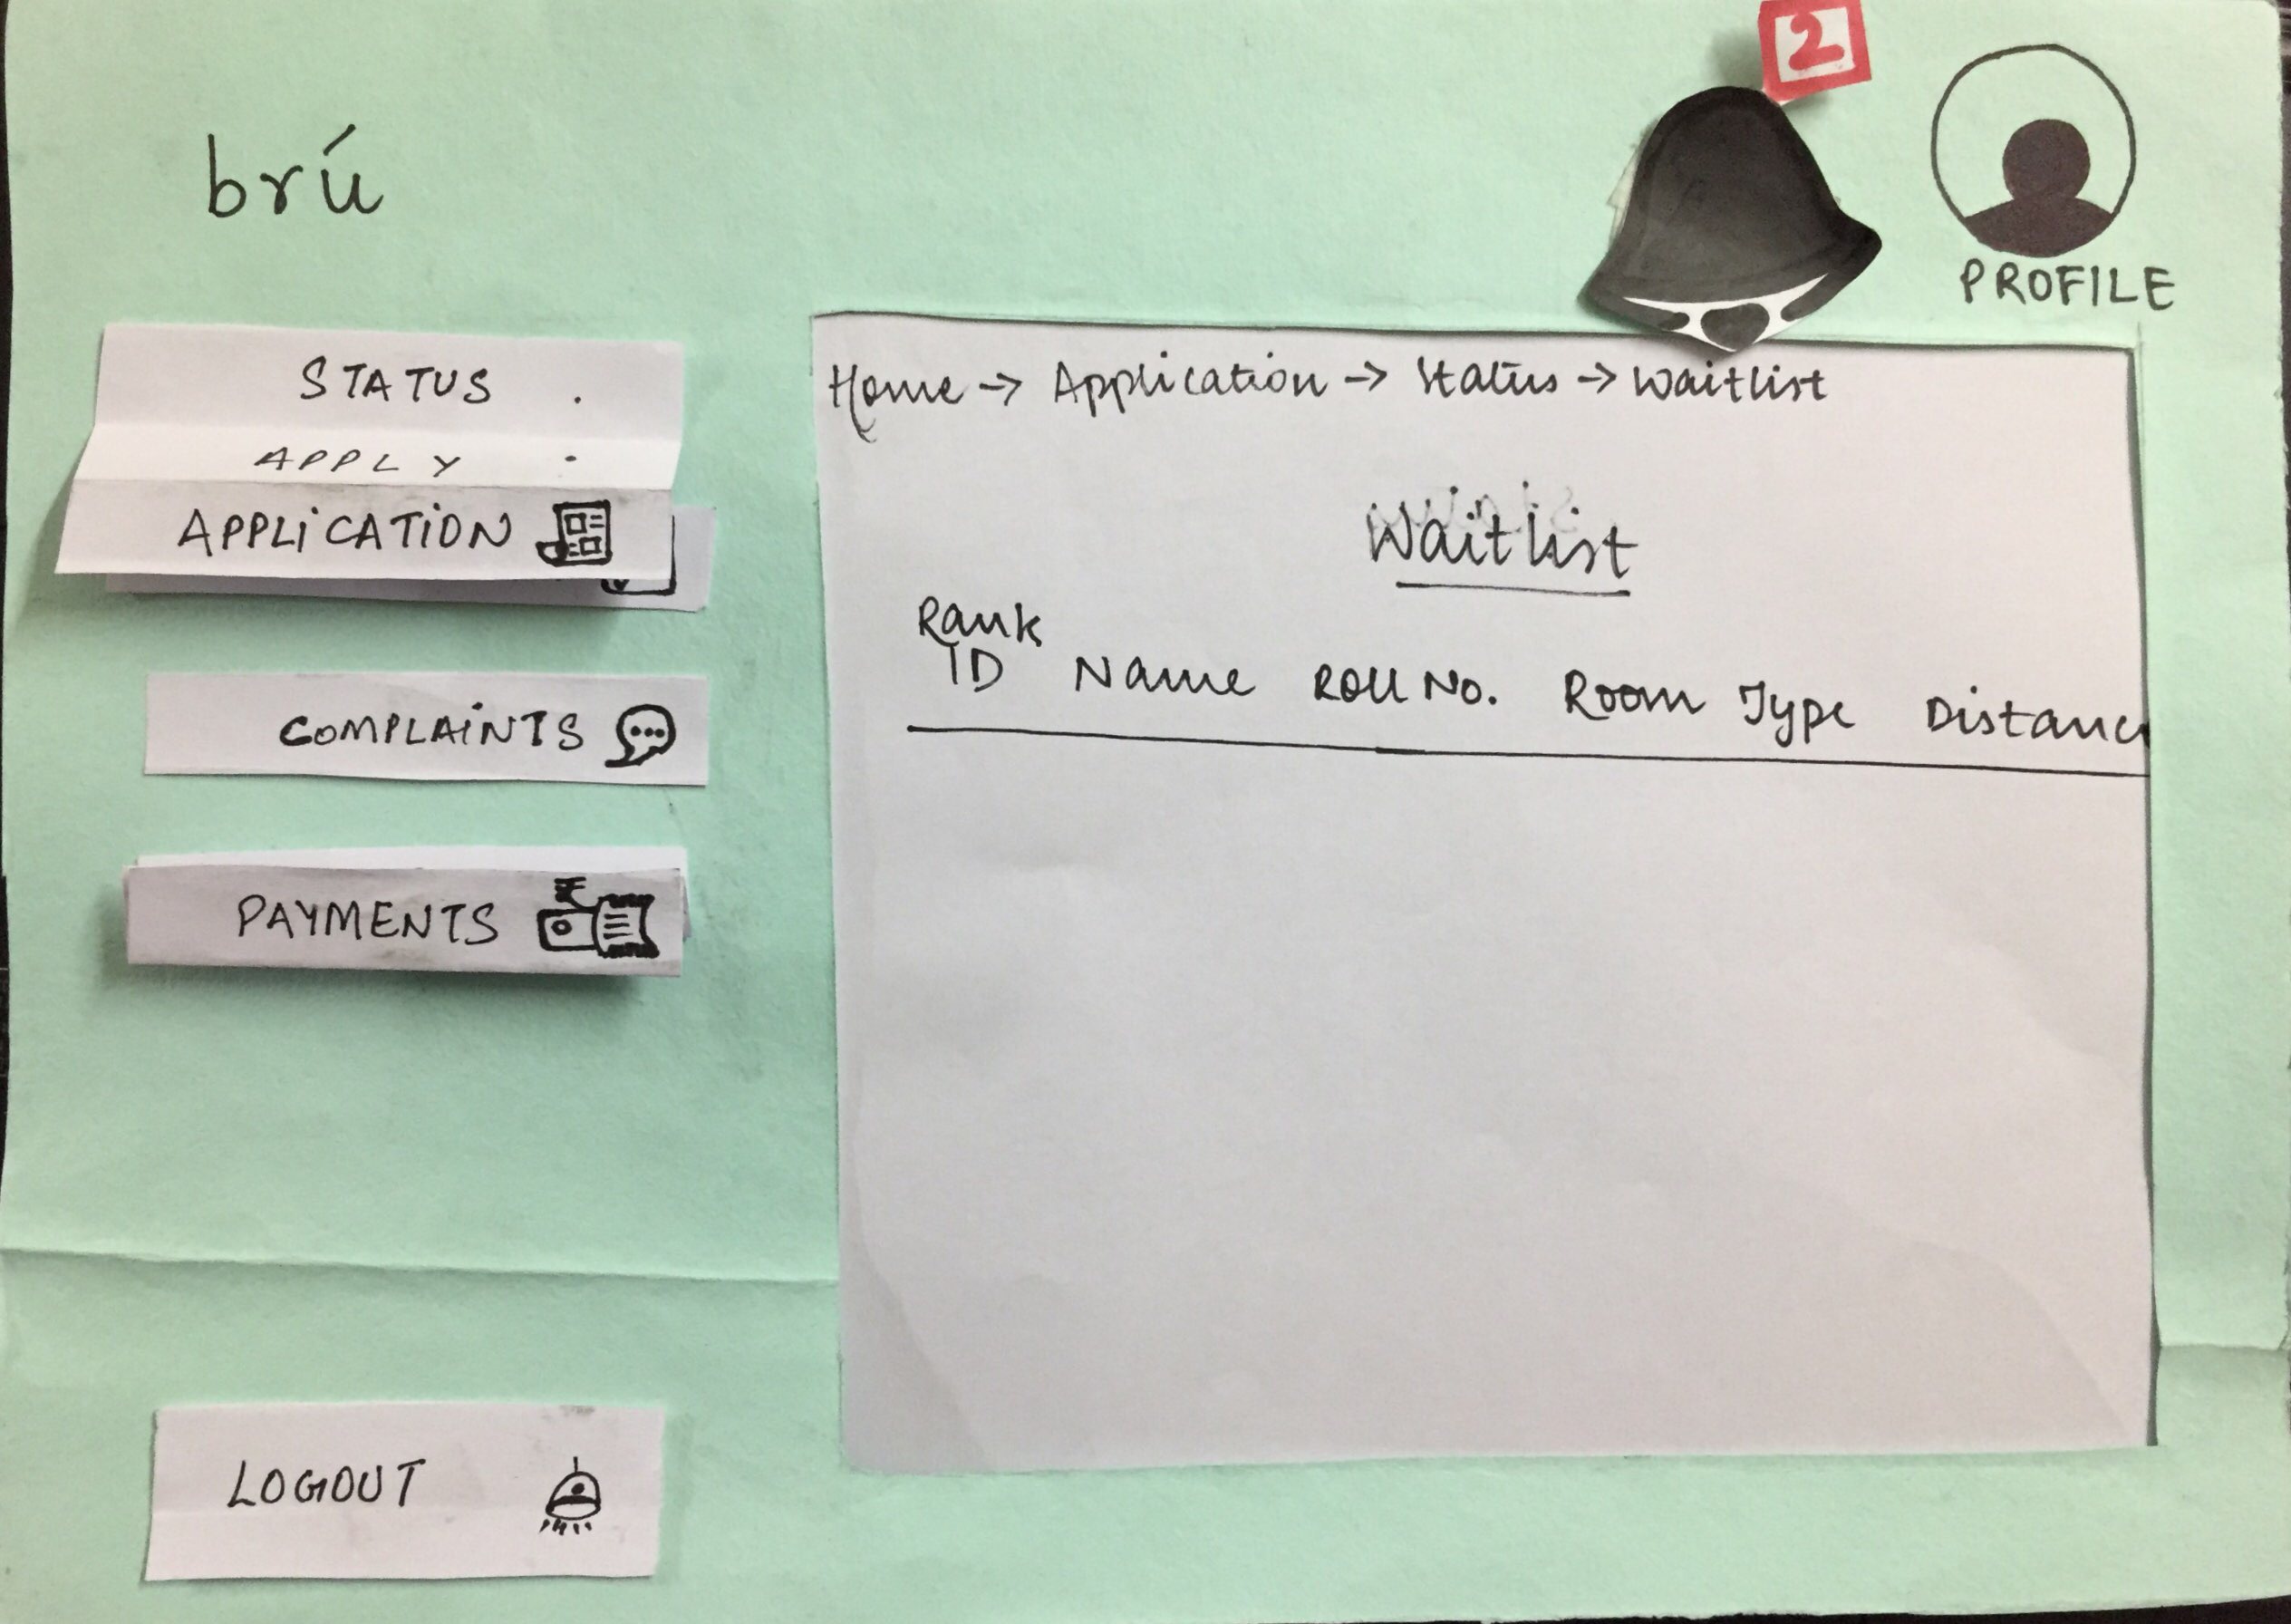 2
brú
PROFILE
STATUS .
APPLY .
APPLiCATiON
COMPLAiNTS
PAYMENTS
LOGOUT
Home → Application → Status → Waitlist
Waitlist
Rank
ID Name Roll No. Room Type Distance